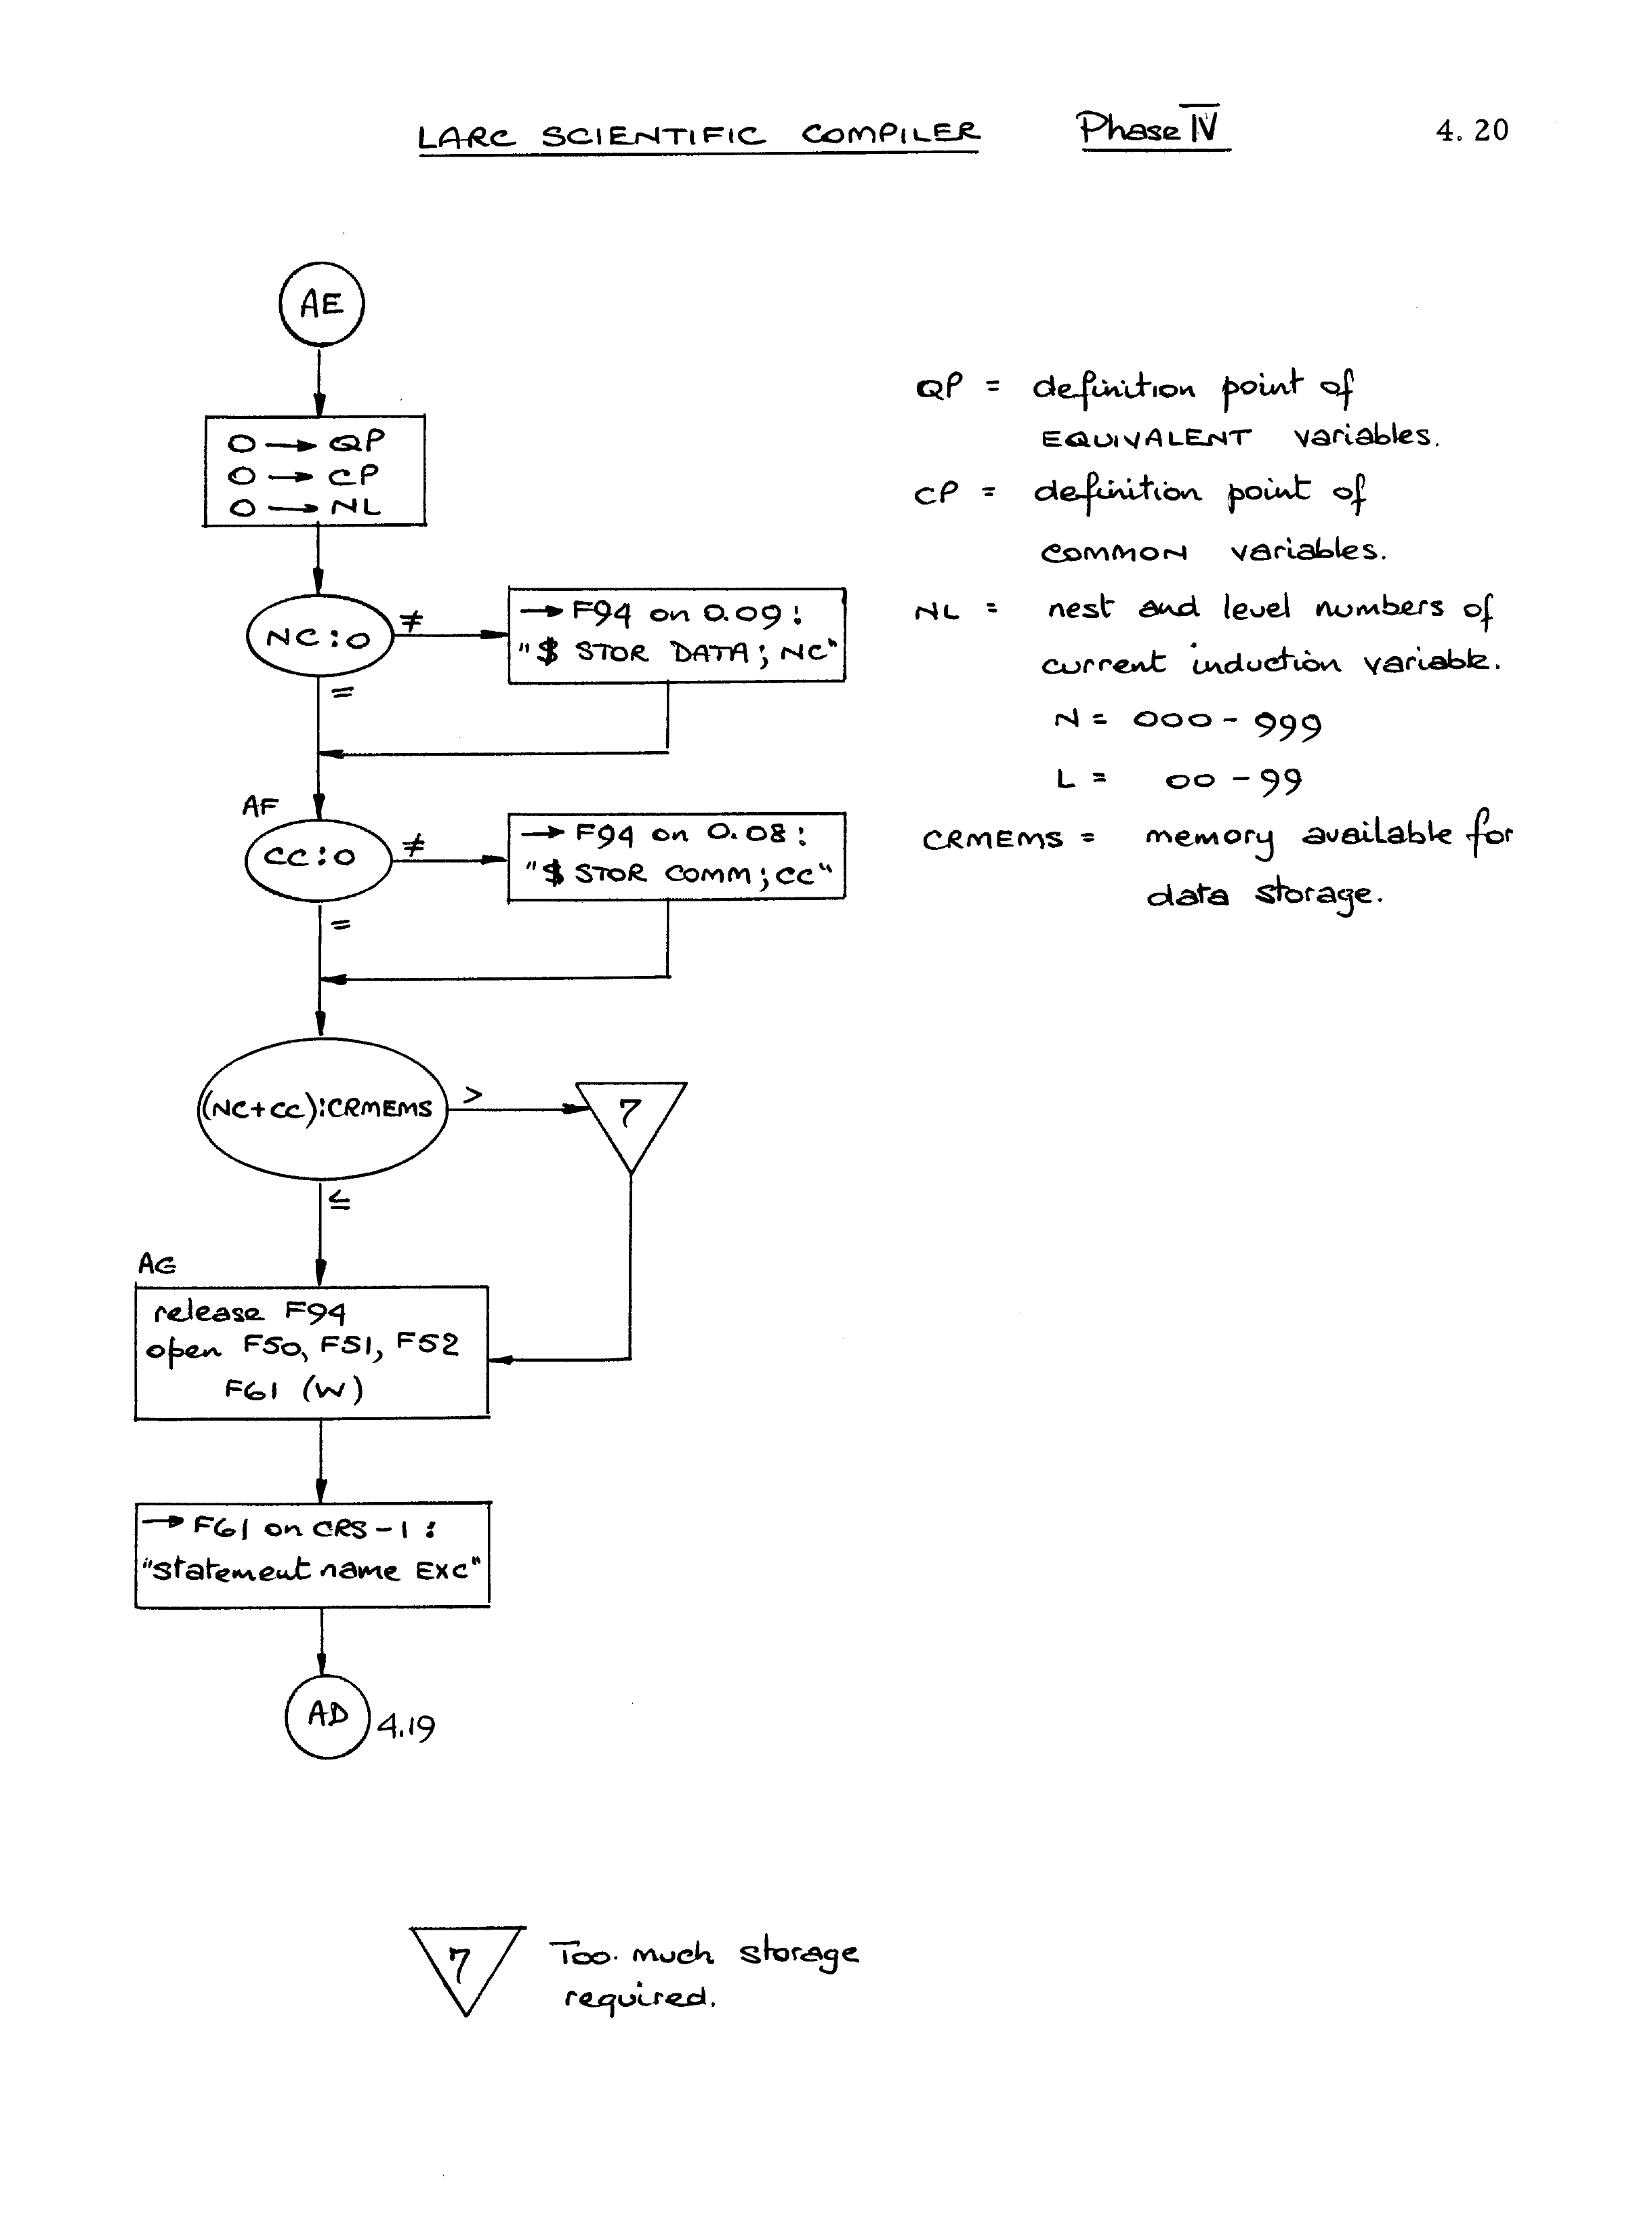 LARC SCIENTIFIC COMPILER Phase IV 4. 20
AE
0 → QP
0 → CP
0 → NL
NC : 0 ≠
=
→ F94 on 0.09 :
"$ STOR DATA ; NC"
AF
CC : 0 ≠
=
→ F94 on 0.08 :
"$ STOR COMM ; CC"
(NC+CC):CRMEMS >
≤
7
AG
release F94
open F50, F51, F52
F61 (W)
→ F61 on CRS-1 :
"statement name EXC"
AD 4.19
QP = definition point of
EQUIVALENT variables.
CP = definition point of
COMMON variables.
NL = nest and level numbers of
current induction variable.
N = 000 - 999
L = 00 - 99
CRMEMS = memory available for
data storage.
7 Too much storage
required.